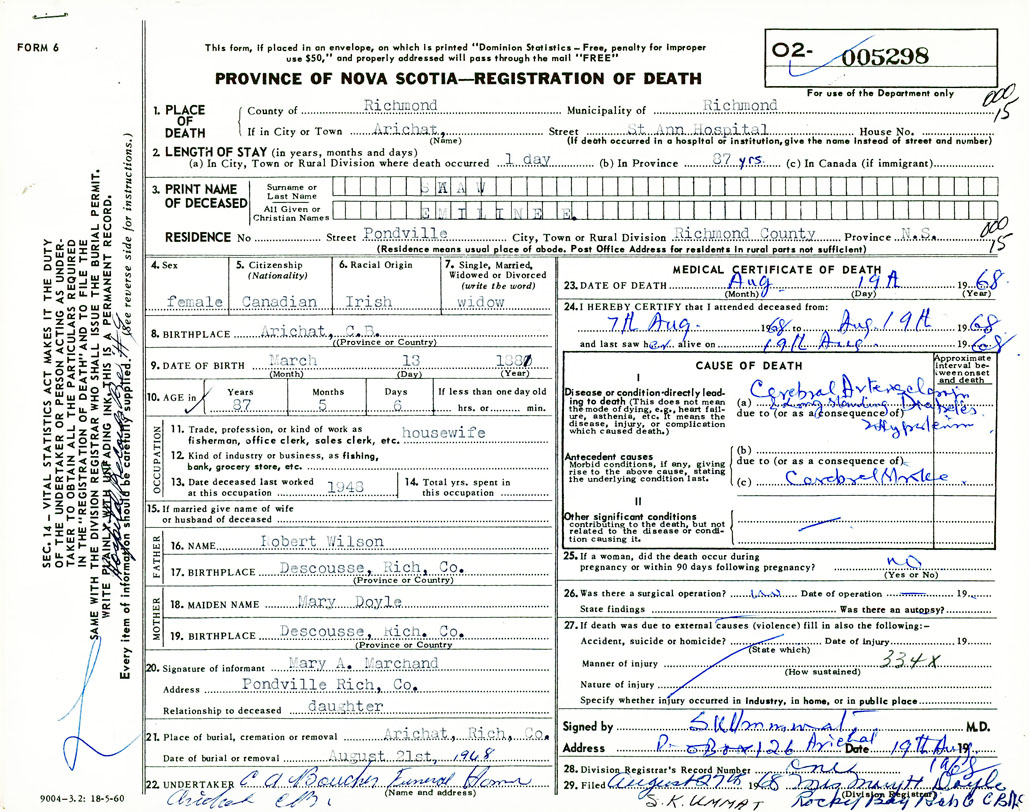 FORM 6
This form, if placed in an envelope, on which is printed "Dominion Statistics – Free, penalty for improper
use $50," and properly addressed will pass through the mail "FREE"
PROVINCE OF NOVA SCOTIA—REGISTRATION OF DEATH
O2- 005298
For use of the Department only
000
15
1. PLACE OF DEATH
County of Richmond Municipality of Richmond
If in City or Town Arichat, Street St Ann Hospital House No.
(Name) (If death occurred in a hospital or institution, give the name instead of street and number)
2. LENGTH OF STAY (in years, months and days)
(a) In City, Town or Rural Division where death occurred 1 day (b) In Province 87 yrs. (c) In Canada (if immigrant)
3. PRINT NAME OF DECEASED
Surname or Last Name SHAW
All Given or Christian Names EMILINE E.
000
15
RESIDENCE No Street Pondville City, Town or Rural Division Richmond County Province N.S.
(Residence means usual place of abode. Post Office Address for residents in rural parts not sufficient)
4. Sex
female
5. Citizenship
(Nationality)
Canadian
6. Racial Origin
Irish
7. Single, Married, Widowed or Divorced
(write the word)
widow
8. BIRTHPLACE Arichat, C.B.
(Province or Country)
9. DATE OF BIRTH March 13 1881
(Month) (Day) (Year)
10. AGE in
Years 87 Months 5 Days 6 If less than one day old
hrs. or min.
OCCUPATION
11. Trade, profession, or kind of work as
fisherman, office clerk, sales clerk, etc. housewife
12. Kind of industry or business, as fishing,
bank, grocery store, etc.
13. Date deceased last worked
at this occupation 1948
14. Total yrs. spent in
this occupation
15. If married give name of wife
or husband of deceased
FATHER
16. NAME Robert Wilson
17. BIRTHPLACE Descousse, Rich, Co.
(Province or Country)
MOTHER
18. MAIDEN NAME Mary Doyle
19. BIRTHPLACE Descousse, Rich. Co.
(Province or Country
20. Signature of informant Mary A. Marchand
Address Pondville Rich, Co.
Relationship to deceased daughter
21. Place of burial, cremation or removal Arichat, Rich, Co.
Date of burial or removal August 21st, 1968
22. UNDERTAKER C A Boucher Funeral Home
(Name and address)
Arichat C.B.
9004-3.2: 18-5-60
MEDICAL CERTIFICATE OF DEATH
23. DATE OF DEATH Aug 19th 1968
(Month) (Day) (Year)
24. I HEREBY CERTIFY that I attended deceased from:
7th Aug. 1968 to Aug. 19th 1968
and last saw her alive on 19th Aug. 1968
CAUSE OF DEATH
Approximate interval between onset and death
I
Disease or condition directly leading to death (This does not mean the mode of dying, e.g., heart failure, asthenia, etc. It means the disease, injury, or complication which caused death.)
(a) Cerebral
Long Standing Diabetes
due to (or as a consequence of)
Antecedent causes
Morbid conditions, if any, giving rise to the above cause, stating the underlying condition last.
(b)
due to (or as a consequence of)
(c) Cerebral
II
Other significant conditions
contributing to the death, but not related to the disease or condition causing it.
25. If a woman, did the death occur during
pregnancy or within 90 days following pregnancy? no
(Yes or No)
26. Was there a surgical operation? Date of operation 19
State findings Was there an autopsy?
27. If death was due to external causes (violence) fill in also the following:–
Accident, suicide or homicide? Date of injury 19
(State which)
Manner of injury 334X
(How sustained)
Nature of injury
Specify whether injury occurred in Industry, in home, or in public place
Signed by S K Ummat M.D.
Address P. O Box 126 Arichat Date 19th Aug 19
1968
28. Division Registrar's Record Number
29. Filed August 27th 1968 Mrs Mary H Doyle
(Division Registrar)
S.K. UMMAT Rocky Bay Rich Co C.B.
SEC. 14 – VITAL STATISTICS ACT MAKES IT THE DUTY
OF THE UNDERTAKER OR PERSON ACTING AS UNDER-
TAKER TO OBTAIN ALL THE PARTICULARS REQUIRED
IN THE "REGISTRATION OF DEATH" AND TO FILE THE
SAME WITH THE DIVISION REGISTRAR WHO SHALL ISSUE THE BURIAL PERMIT.
WRITE PLAINLY WITH UNFADING INK, THIS IS A PERMANENT RECORD.
Every item of information should be carefully supplied. (See reverse side for instructions.)